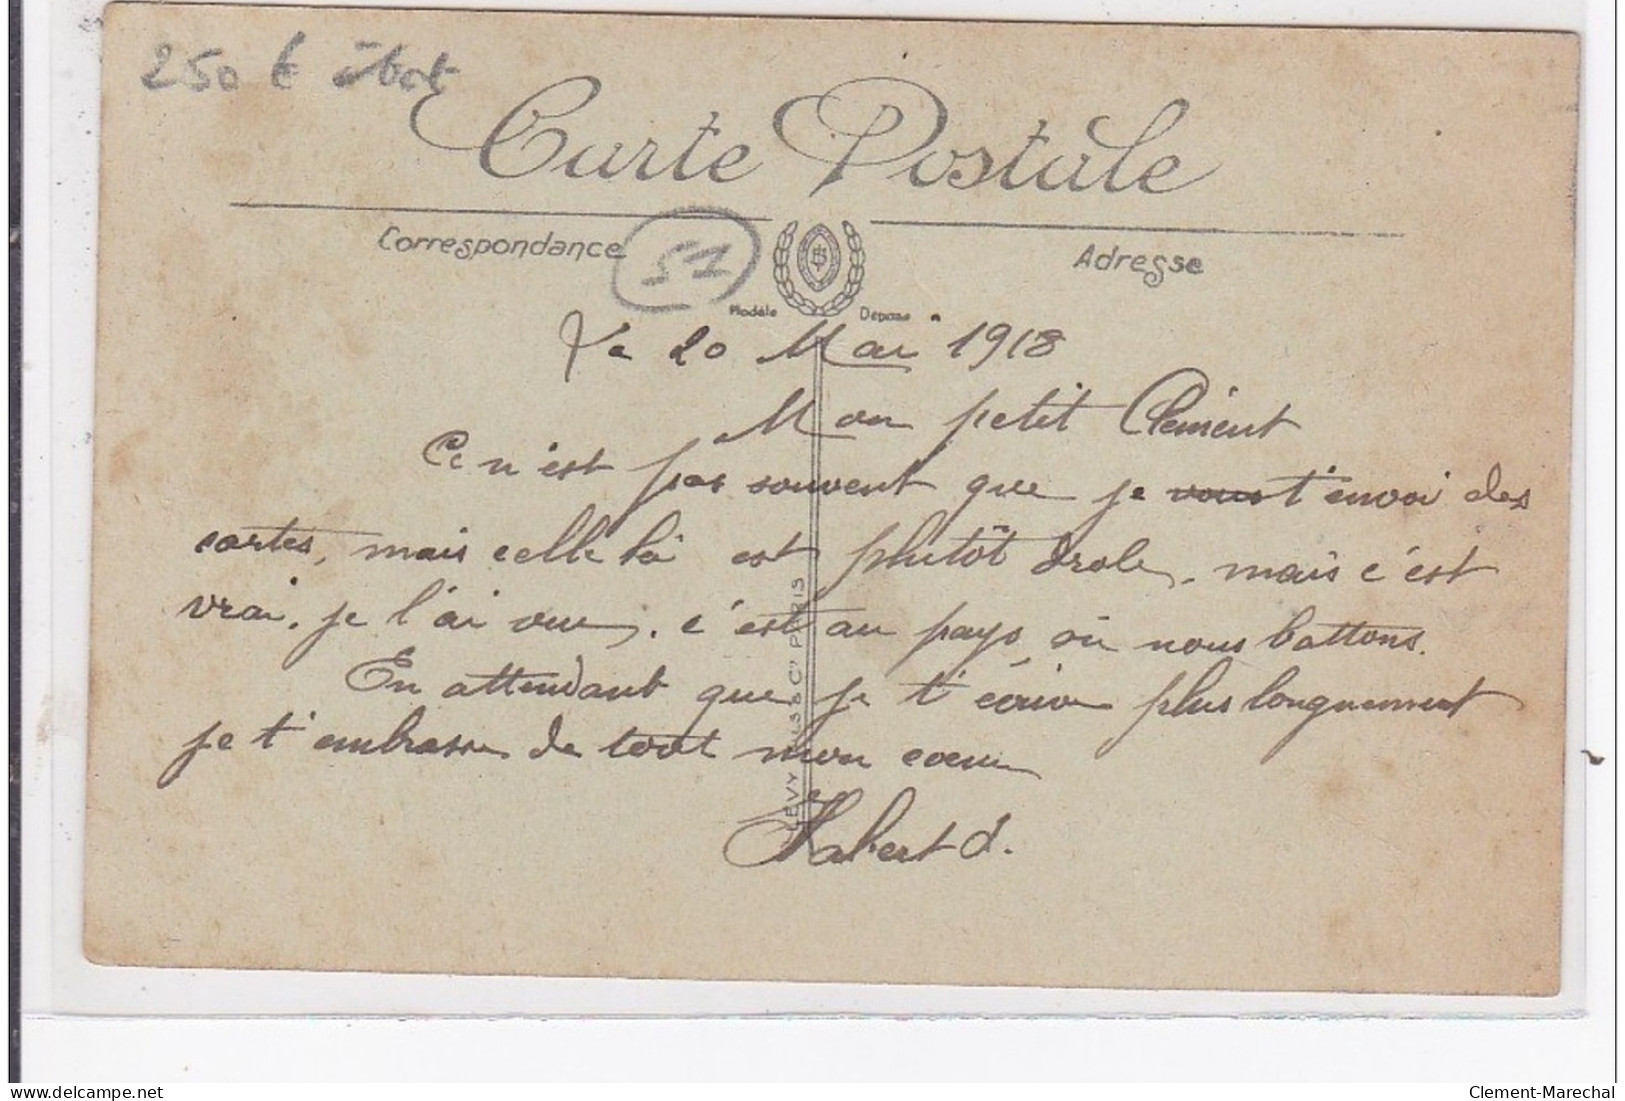 250 €
Carte Postale
Correspondance
51
Adresse
Modèle Déposé
Le 20 Mai 1918
Mon petit Clément
Ce n'est pas souvent que je vous t'envoi des
cartes, mais celle là est plutôt drole, mais c'est
vrai, je l'ai vue, c'est au pays où nous battons.
En attendant que je t'écrive plus longuement
je t'embrasse de tout mon coeur
Habert d.
LÉVY FILS & Cie PARIS
Clement-Marechal